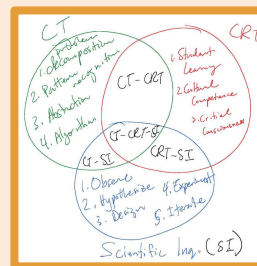 CT
CRT
1. Problem
decomposition
2. Pattern
recognition
3. Abstraction
4. Algorithm
1. Student
Learning
2. Cultural
Competence
3. Critical
Consciousness
CT-CRT
CT-CRT-SI
CT-SI
CRT-SI
1. Observe
2. Hypothesize
3. Design
4. Experiment
5. Iterate
Scientific Inq. (SI)